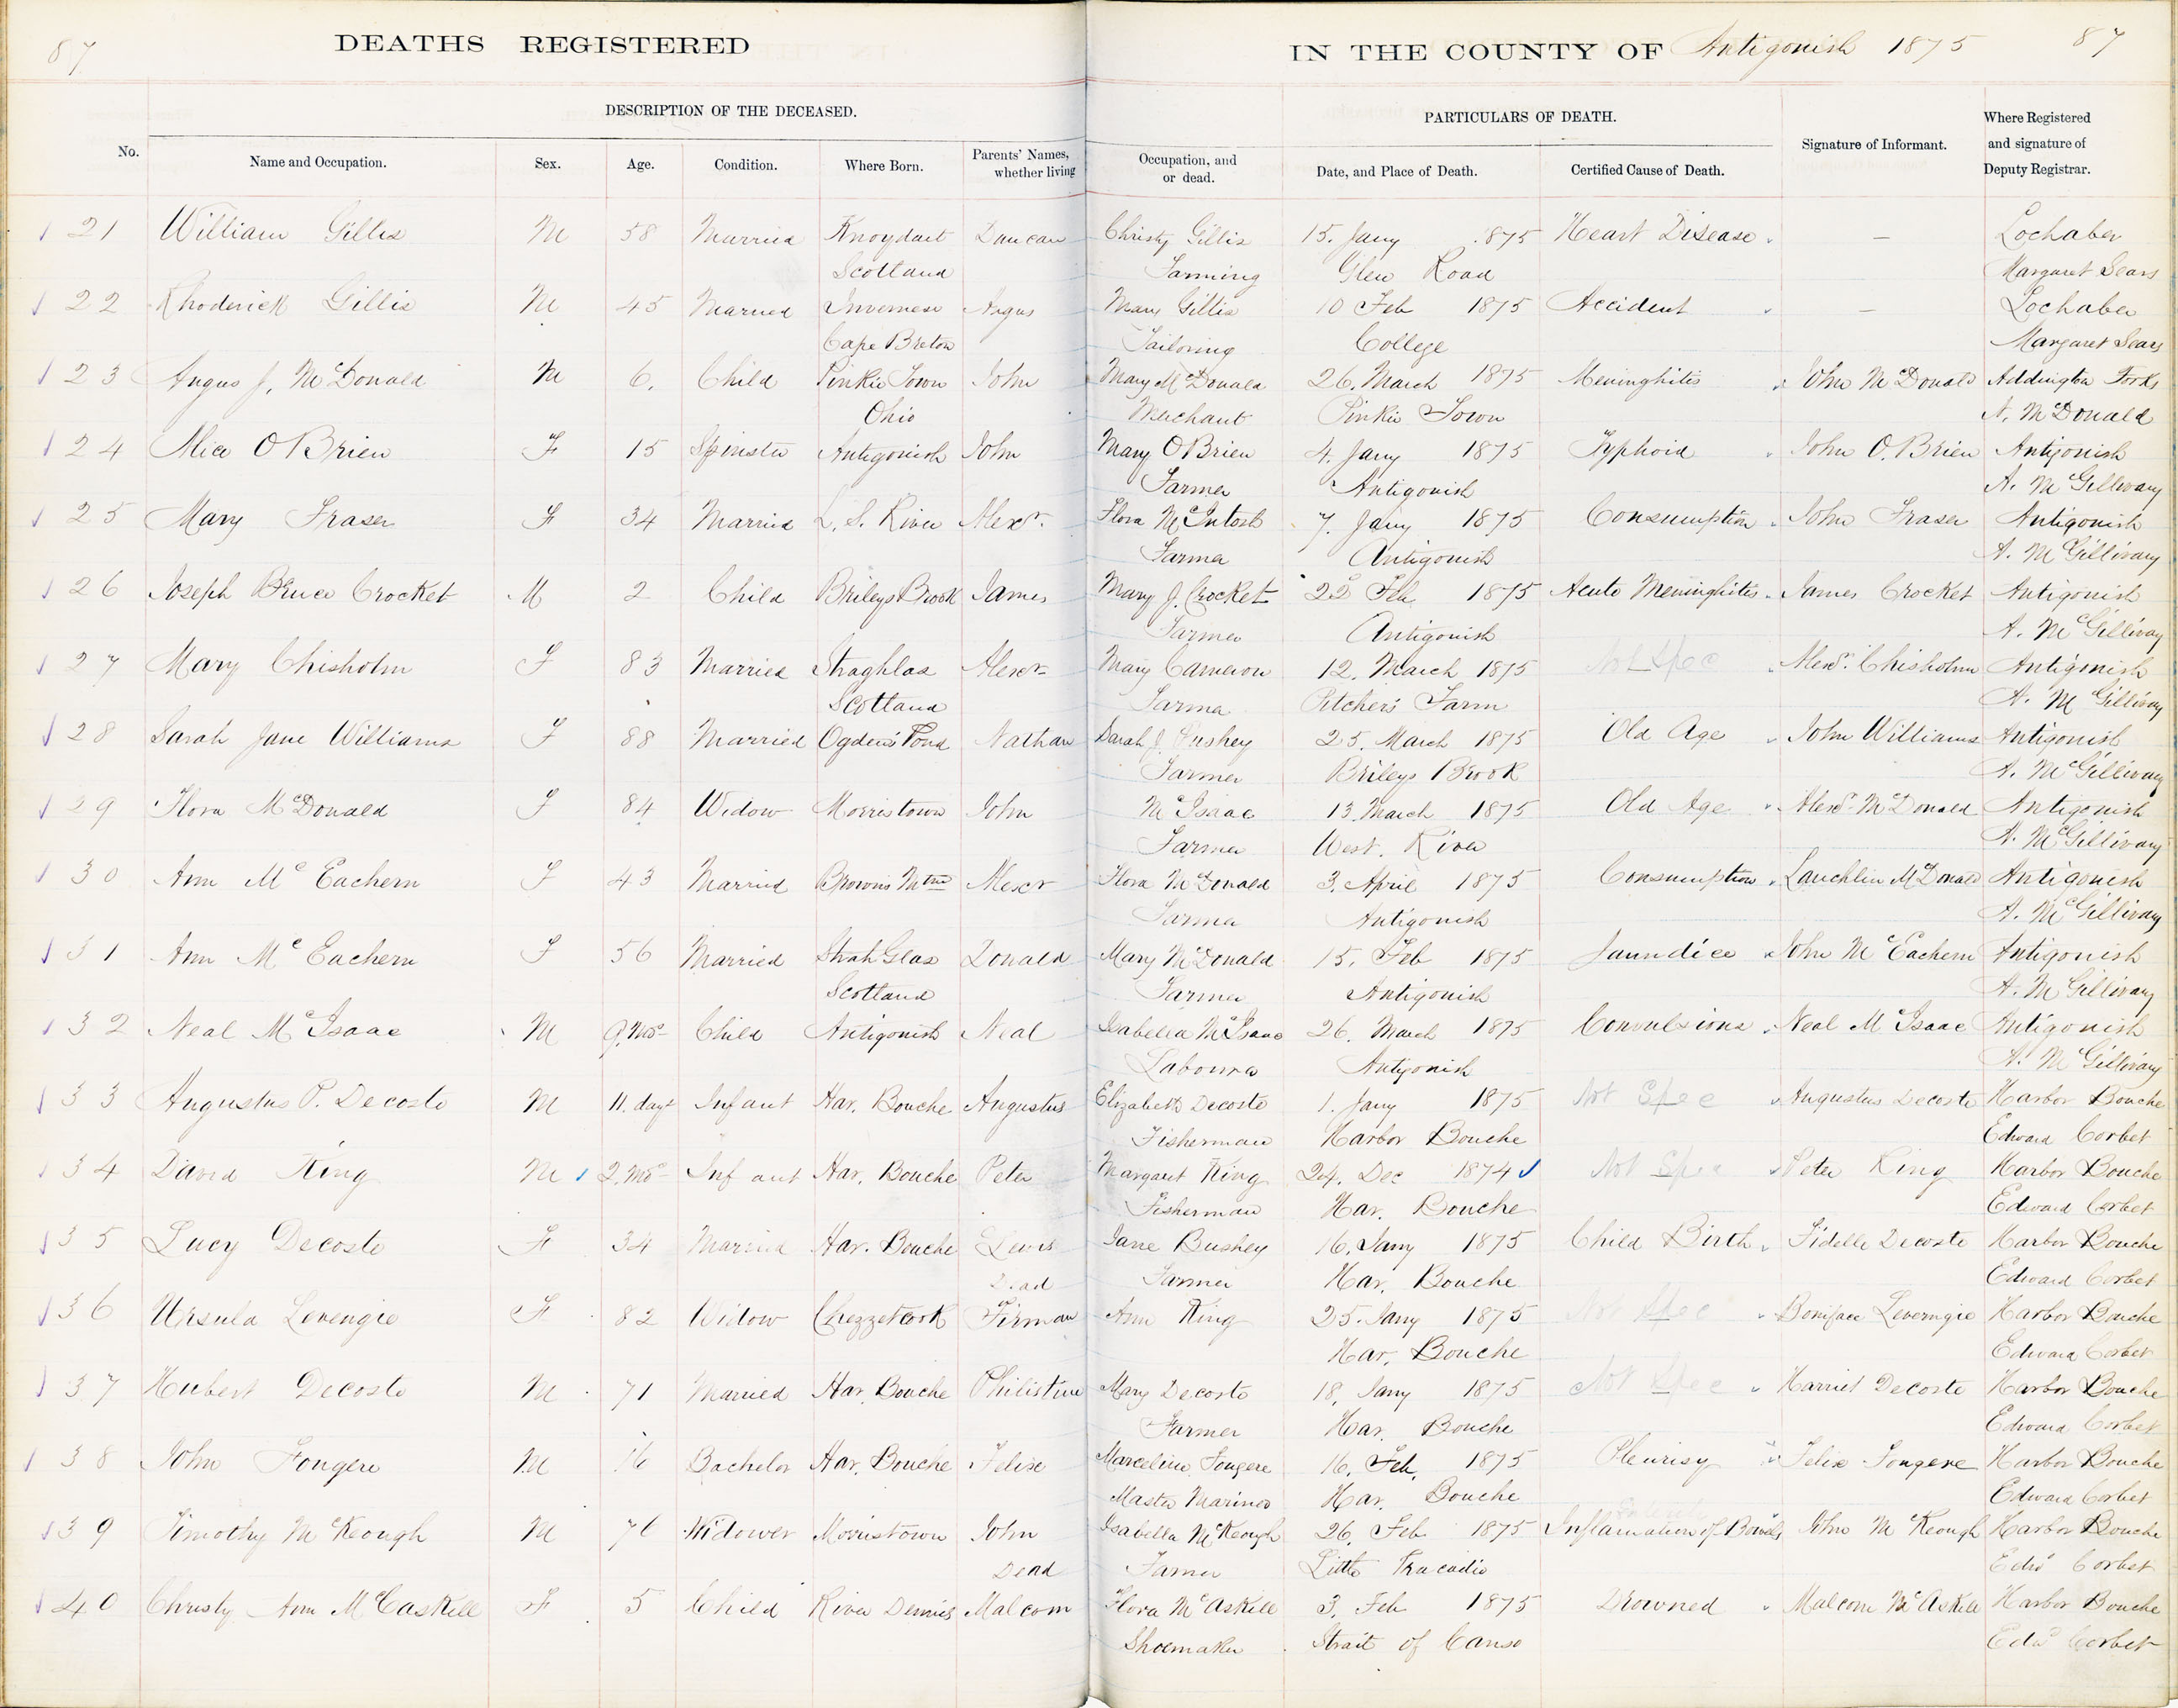 87 DEATHS REGISTERED IN THE COUNTY OF Antigonish 1875 87
DESCRIPTION OF THE DECEASED. PARTICULARS OF DEATH.
No. Name and Occupation. Sex. Age. Condition. Where Born. Parents' Names, whether living Occupation, and or dead. Date, and Place of Death. Certified Cause of Death. Signature of Informant. Where Registered and signature of Deputy Registrar.
21 William Gillis M 58 Married Knoydart Duncan Christy Gillis 15. Jany 1875 Heart Disease — Lochaber
Scotland Farming Glen Road Margaret Sears
22 Rhoderick Gillis M 45 Married Inverness Angus Mary Gillis 10 Feb 1875 Accident — Lochaber
Cape Breton Tailoring College Margaret Sears
23 Angus J. McDonald M 6. Child Pinkie Town John Mary McDonald 26. March 1875 Meninghitis John McDonald Addington Forks
Ohio Merchant Pinkie Town A. McDonald
24 Alice O Brien F 15 Spinster Antigonish John Mary O Brien 4. Jany 1875 Typhoid John O. Brien Antigonish
Farmer Antigonish A. McGillivary
25 Mary Fraser F 34 Married L. S. River Alexr. Flora McIntosh 7. Jany 1875 Consumption John Fraser Antigonish
Farmer Antigonish A. McGillivary
26 Joseph Bruce Crocket M 2 Child Brileys Brook James Mary J. Crocket 22 Feb 1875 Acute Meninghites James Crocket Antigonish
Farmer Antigonish A. McGillivay
27 Mary Chisholm F 83 Married Straghlas Alexr Mary Cameron 12. March 1875 Not Spec Alexr. Chisholm Antigonish
Scotland Farmer Pitcher's Farm A. McGillivay
28 Sarah Jane Williams F 88 Married Ogden's Pond Nathan Sarah J. 25. March 1875 Old Age John Williams Antigonish
Farmer Brileys Brook A. McGillivay
29 Flora McDonald F 84 Widow Morristown John McIsaac 13. March 1875 Old Age Alexr. McDonald Antigonish
Farmer West. River A. McGillivary
30 Ann McEachern F 43 Married Brown's Mtn Alexr Flora McDonald 3. April 1875 Consumption Lauchlin McDonald Antigonish
Farmer Antigonish A. McGillivay
31 Ann McEachern F 56 Married StrahGlas Donald Mary McDonald 15. Feb 1875 Jaundice John McEachern Antigonish
Scotland Farmer Antigonish A. McGillivary
32 Neal McIsaac M 9. Mos Child Antigonish Neal Isabella McIsaac 26. March 1875 Convulsions Neal McIsaac Antigonish
Labourer Antigonish A. McGillivay
33 Augustus P. Decoste M 11. days Infant Har. Bouche Augustus Elizabeth Decoste 1. Jany 1875 Not Spec Augustus Decoste Harbor Bouche
Fisherman Harbor Bouche Edward Corbet
34 David King M 2. Mos Infant Har. Bouche Peter Margaret King 24. Dec 1874 Not Spec Peter King Harbor Bouche
Fisherman Har. Bouche Edward Corbet
35 Lucy Decoste F 34 Married Har. Bouche Lewis Jane Bushey 16. Jany 1875 Child Birth Fidelle Decoste Harbor Bouche
Dead Farmer Har. Bouche Edward Corbet
36 Ursula Levengie F 82 Widow Chezzetcook Firman Ann King 25. Jany 1875 Not Spec Boniface Leverngie Harbor Bouche
Har. Bouche Edward Corbet
37 Hubert Decoste M 71 Married Har. Bouche Philistine Mary Decoste 18. Jany 1875 Not Spec Harriet Decoste Harbor Bouche
Farmer Har. Bouche Edward Corbet
38 John Fougere M 16 Bachelor Har. Bouche Felixe Marceline Fougere 16. Feb. 1875 Pleurisy Felix Fougere Harbor Bouche
Master Mariner Har. Bouche Edward Corbet
39 Timothy McKeough M 76 Widower Morristown John Isabella McKeough 26. Feb 1875 Inflamation of Bowels John McKeough Harbor Bouche
Dead Farmer Little Tracadie Edwd Corbet
40 Christy Ann McCaskill F 5 Child River Dennis Malcom Flora McAskill 3. Feb 1875 Drowned Malcom McAskill Harbor Bouche
Shoemaker Strait of Canso Edwd Corbet